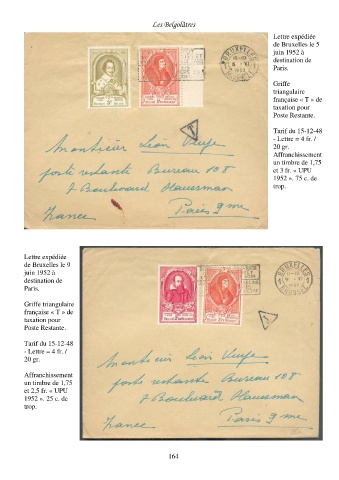 Les Belgolâtres
Lettre expédiée
de Bruxelles le 5
juin 1952 à
destination de
Paris.
Griffe
triangulaire
française « T » de
taxation pour
Poste Restante.
Tarif du 15-12-48
- Lettre = 4 fr. /
20 gr.
Affranchissement
un timbre de 1,75
et 3 fr. « UPU
1952 ». 75 c. de
trop.
BRUXELLES
BRUSSEL
T
Monsieur Léon
poste restante Bureau 108
7 Boulevard Haussman
Paris 9me
France
Lettre expédiée
de Bruxelles le 9
juin 1952 à
destination de
Paris.
Griffe triangulaire
française « T » de
taxation pour
Poste Restante.
Tarif du 15-12-48
- Lettre = 4 fr. /
20 gr.
Affranchissement
un timbre de 1,75
et 2,5 fr. « UPU
1952 ». 25 c. de
trop.
BRUXELLES
BRUSSEL
Monsieur Léon
poste restante Bureau 108
7 Boulevard Haussman
Paris 9me
France
164